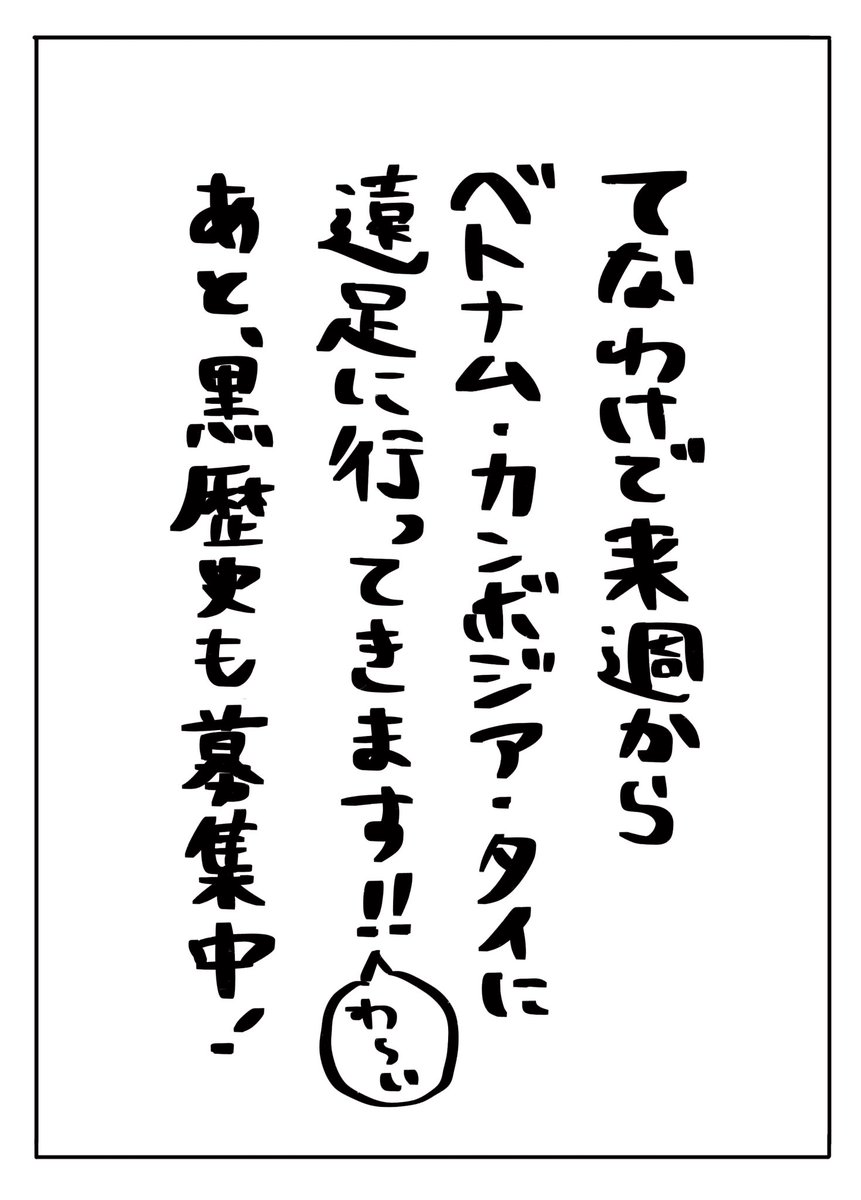 てなわけで来週から
ベトナム・カンボジア・タイに
遠足に行ってきます!!
わーい
あと、黒歴史も募集中!